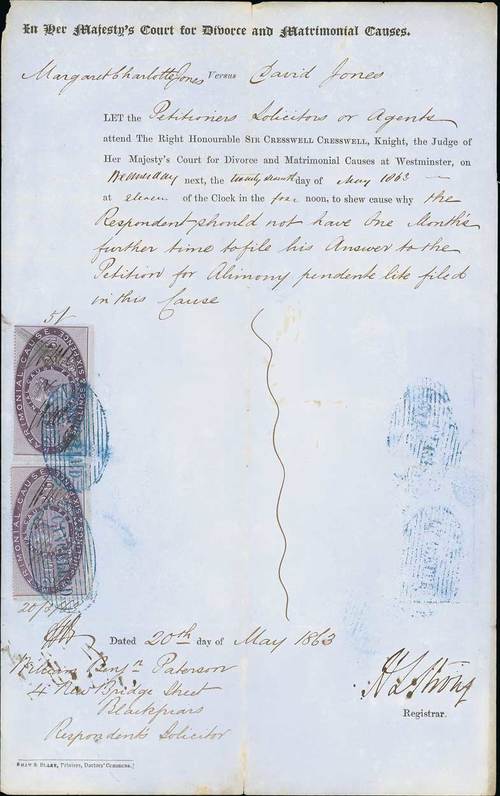 In Her Majesty's Court for Divorce and Matrimonial Causes.
Margaret Charlotte Jones Versus David Jones
LET the Petitioners Solicitors or Agents
attend The Right Honourable SIR CRESSWELL CRESSWELL, Knight, the Judge of
Her Majesty's Court for Divorce and Matrimonial Causes at Westminster, on
Wednesday next, the twenty seventh day of May 1863
at eleven of the Clock in the fore noon, to shew cause why the
Respondent should not have One Month's
further time to file his Answer to the
Petition for Alimony pendente lite filed
in this Cause
5/
MATRIMONIAL CAUSE
MATRIMONIAL CAUSE
Dated 20th day of May 1863
William Benjn Paterson
4 New Bridge Street
Blackfriars
Respondent's Solicitor
H L Strong
Registrar.
SHAW & BLAKE, Printers, Doctors' Commons.]